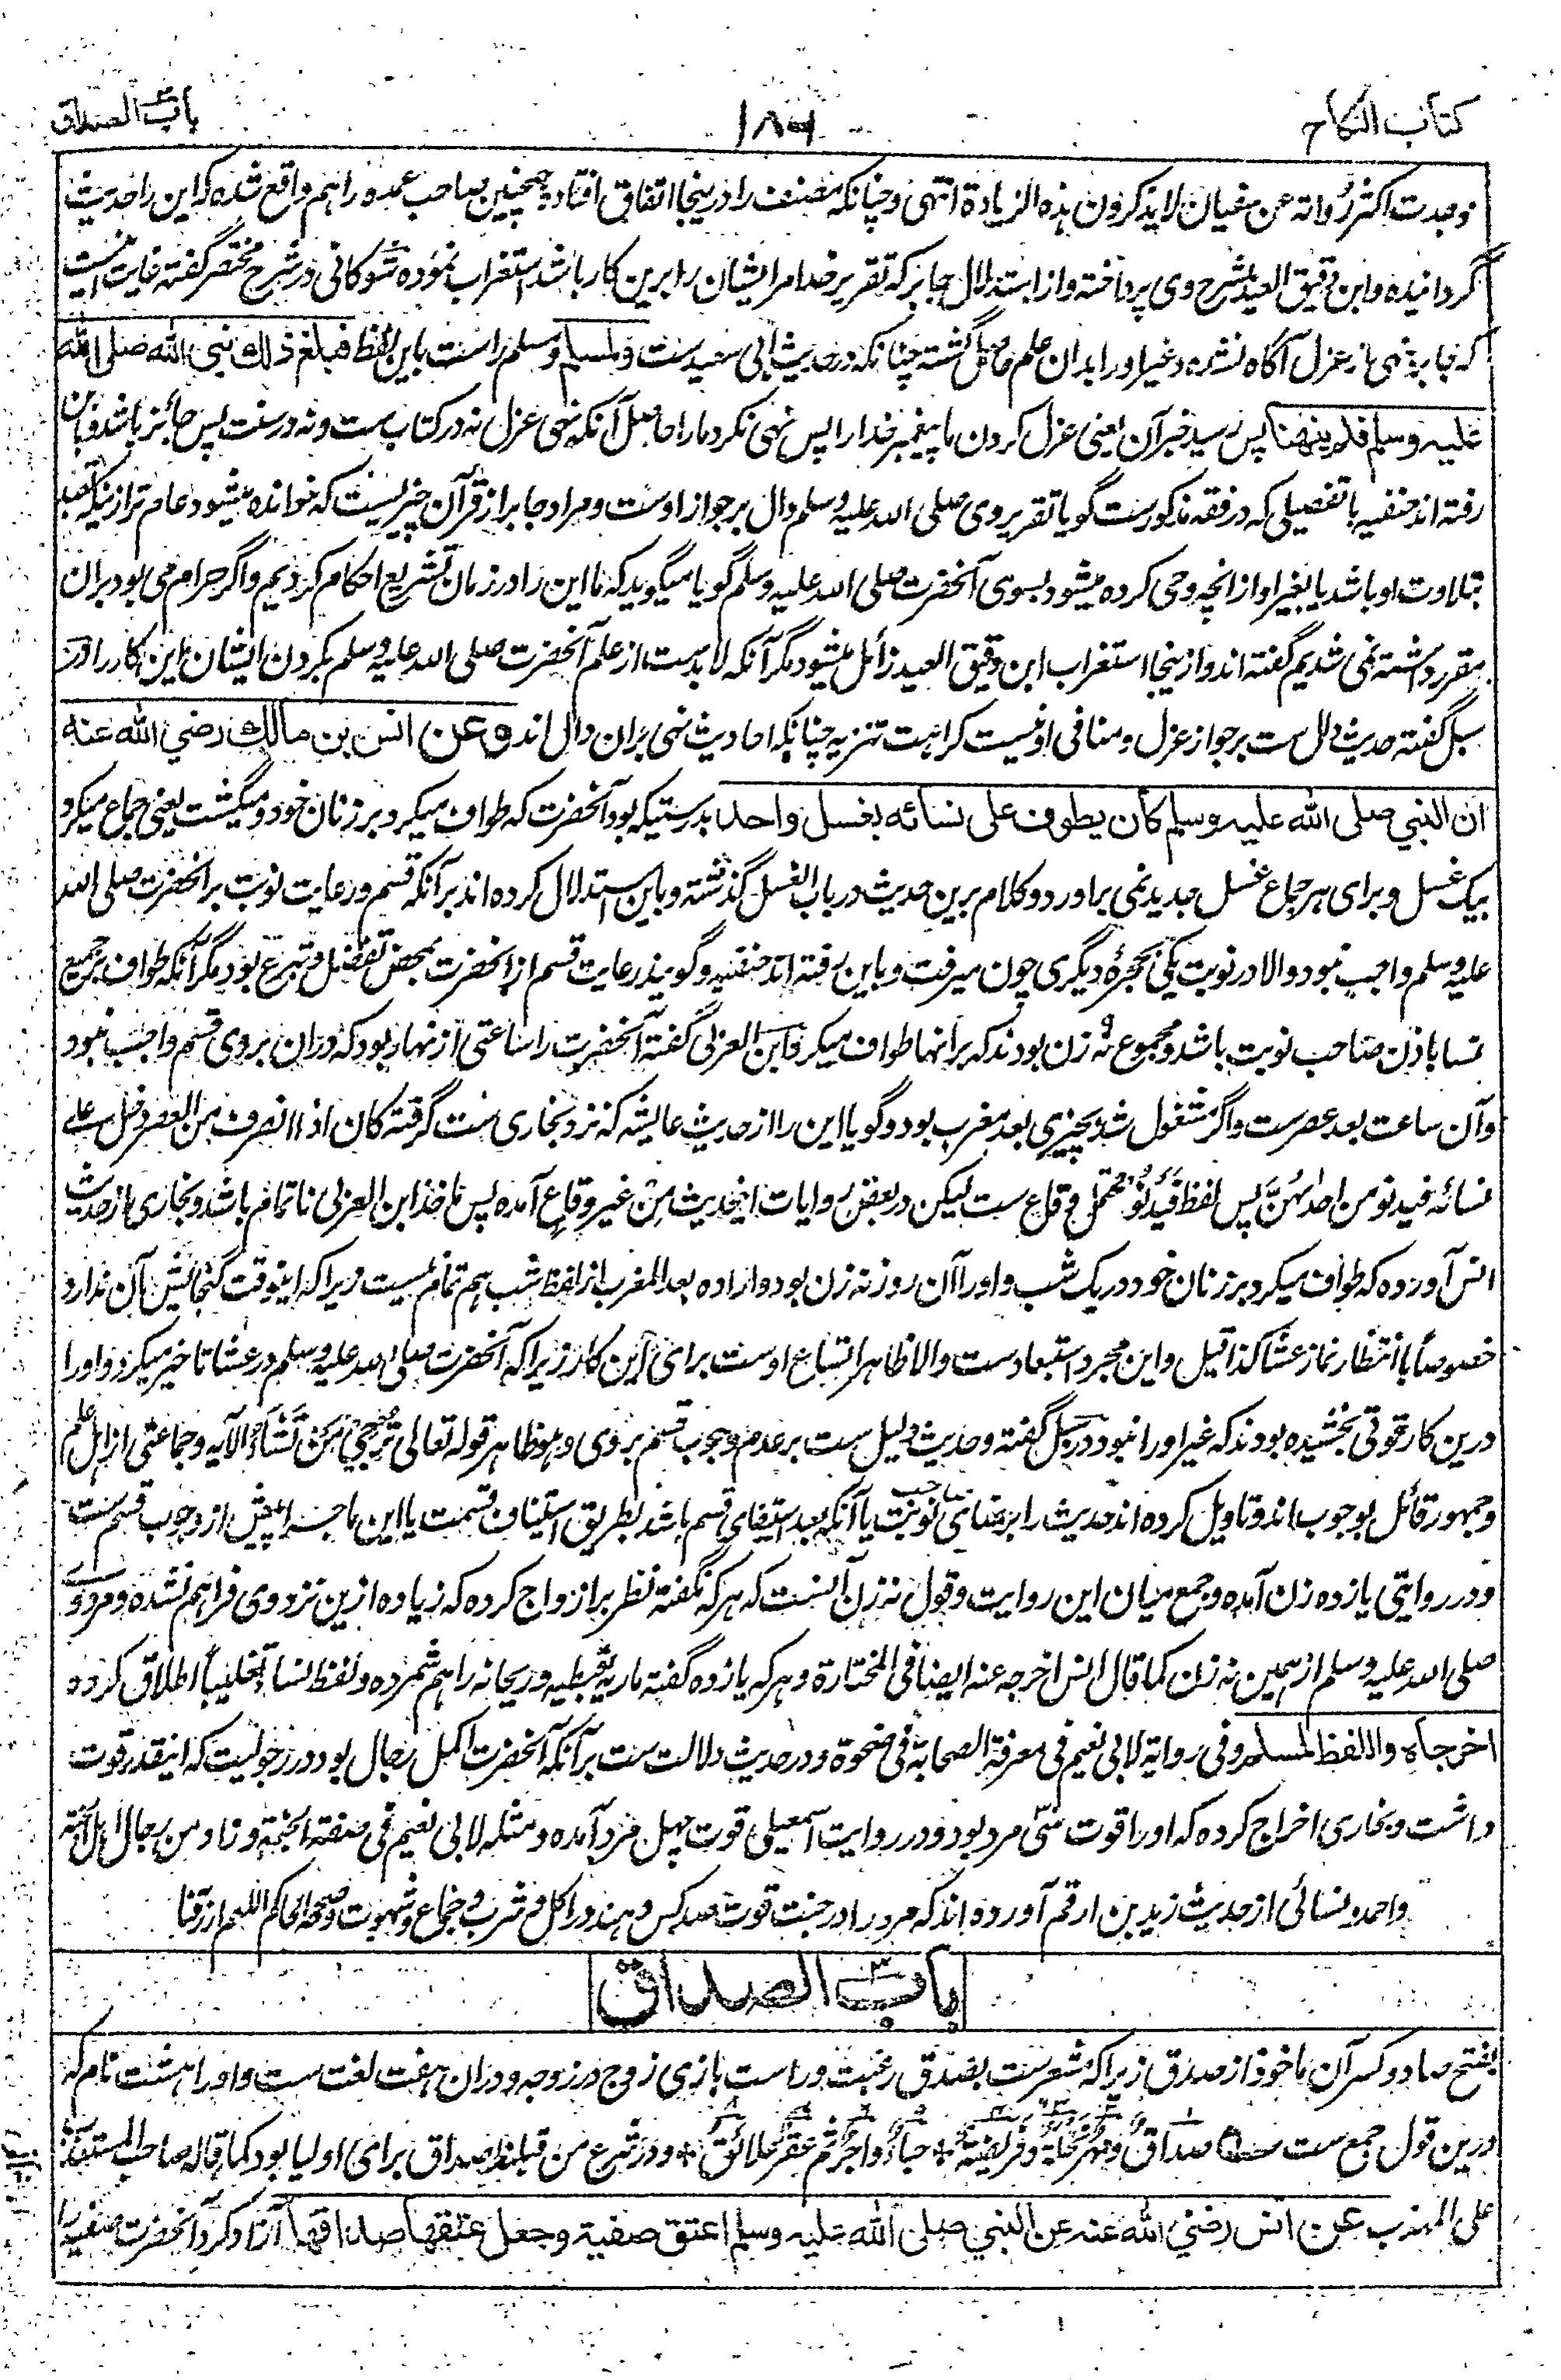 کتاب النکاح
۱۸۶
باب الصداق
وجدت اکثر رواته عن سفیان لا یذکرون هذه الزیادة انتهی و چنانکه مصنف را درینجا اتفاق افتاده همچنین صاحب عمده را هم واقع شده که این را حدیث
گردانیده و ابن دقیق العید بشرح وی پرداخته و از استدلال جابر که تقریر خدا مر ایشان را برین کار باشد استغراب نموده شوکانی در شرح مختصر گفته غایت آنست
که جابر نهی از عزل آگاه نشده و غیر او را بدان علم حاصل گشته چنانکه در حدیث ابی سعید ست ولمسلم و مسلم راست باین لفظ فبلغ ذلك نبی الله صلی الله
علیه وسلم فلم ینهنا پس رسید خبر آن یعنی عزل کردن ما پیغمبر خدا را پس نهی نکرد ما را حاصل آنکه نهی عزل نه در کتاب ست و نه در سنت پس جائز باشد و باین
رفته اند حنفیه با تفصیلی که در فقه مذکورست گویا تقریر وی صلی الله علیه وسلم دال بر جواز اوست و مراد جابر از قرآن چیزیست که خوانده میشود عام تر از ینکه تعبد
بتلاوت او باشد یا بغیر او از انچه وحی کرده میشود بسوی آنحضرت صلی الله علیه وسلم گویا میگوید که ما این را در زمان تشریع احکام کردیم و اگر حرام می بود بران
مقرر داشته نمی شدیم گفته اند و از ینجا استغراب ابن دقیق العید زائل میشود مگر آنکه لابدست از علم آنحضرت صلی الله علیه وسلم بکردن ایشان این کار را و در
سبل گفته حدیث دلیل ست بر جواز عزل و منافی او نیست کراهت تنزیه چنانکه احادیث نهی بران دال اند وعن انس بن مالك رضي الله عنه
ان النبي صلی الله علیه وسلم كان یطوف علی نسائه بغسل واحد بدرستیکه بود آنحضرت که طواف میکرد بر زنان خود و میگشت یعنی جماع میکرد
بیک غسل و برای هر جماع غسل جدید نمی برآورد و کلام برین حدیث در باب الغسل گذشته و باین استدلال کرده اند بر آنکه قسم و رعایت نوبت بر آنحضرت صلی الله
علیه وسلم واجب نبود و الا در نوبت یکی بحجرهٔ دیگری چون میرفت و باین رفته اند حنفیه و گویند رعایت قسم از آنحضرت بمحض تفضل و تبرع بود مگر آنکه طواف بر جمیع
نسا باذن صاحب نوبت باشد و مجموع نه زن بودند که بر آنها طواف میکرد و ابن العربی گفته آنحضرت را ساعتی از نهار بود که دران بر وی قسم واجب نبود
و آن ساعت بعد عصرست و اگر مشغول شد بچیزی بعد مغرب بود و گویا این را از حدیث عایشه که نزد بخاری ست گرفته کان اذا انصرف من العصر دخل علی
نسائه فیدنو من احداهن پس لفظ فیدنو محتمل وقاع ست لیکن در بعض روایات اینحدیث من غیر وقاع آمده پس ماخذ ابن العربی ناتمام باشد و بخاری از حدیث
انس آورده که طواف میکرد بر زنان خود در یک شب و او را آن روز نه زن بود و اراده بعد المغرب از لفظ شب هم تمام نیست زیرا که اینوقت گنجائش آن ندارد
خصوصاً با انتظار نماز عشا کذا قیل و این مجرد استبعاد ست و الا ظاهر اتساع اوست برای این کار زیرا که آنحضرت صلی الله علیه وسلم در عشا تاخیر میکرد و او را
درین کار قوتی بخشیده بودند که غیر او را نبود در سبل گفته و حدیث دلیل ست بر عدم وجوب قسم بر وی و هو ظاهر قوله تعالی ترجی من تشاء الآیه و جماعتی از اهل علم
و جمهور قائل بوجوب اند و تاویل کرده اند حدیث را بر رضای صاحب نوبت یا آنکه بعد استیفای قسم باشد بطریق استیناف قسمت یا این ماجرا پیش از وجوب قسم ست
و در روایتی یازده زن آمده و جمع میان این روایت و قول نه زن آنست که هر که نه گفته نظر بر ازواج کرده که زیاده ازین نزد وی فراهم نشده و مرد وی
صلی الله علیه وسلم از همین نه زن کما قال انس اخرجه عنه ایضا فی المختارة و هر که یازده گفته ماریه قبطیه و ریحانه را هم شمرده و لفظ نسا تغلیباً اطلاق کرده
اخرجاه واللفظ لمسلم و فی روایة لابی نعیم فی معرفة الصحابة فی ضحوة و در حدیث دلالت ست بر آنکه آنحضرت اکمل رجال بود در رجولیت که اینقدر قوت
داشت و بخاری اخراج کرده که او را قوت سی مرد بود و در روایت اسمعیلی قوت چهل مرد آمده و مثله لابی نعیم فی صفة الجنة و زاد من رجال اهل الجنة
و احمد و نسائی از حدیث زید بن ارقم آورده اند که مرد را در جنت قوت صد کس دهند در اکل و شرب و جماع و شهوت و صححه الحاکم اللهم ارزقنا
باب الصداق
بفتح صاد و کسر آن ماخوذ از صدق زیرا که مشعرست بصدق رغبت و راست بازی زوج در زوجه و دران هفت لغت ست و او را هشت نام که
درین قول جمع ست صداق ومهر نحلة وفریضة + حباء واجر ثم عقر علائق + و در شرع من قبلنا صداق برای اولیا بود کما قاله صاحب المستعذب
علی المهذب عن انس رضي الله عنه عن النبي صلی الله علیه وسلم اعتق صفیة وجعل عتقها صداقها آزاد کرد آنحضرت صفیه را